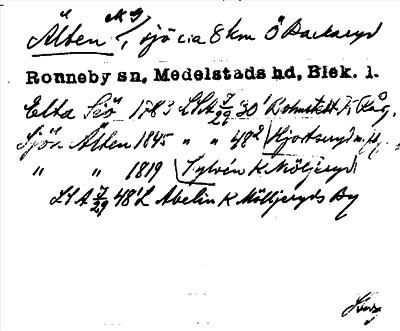 Älten, sjö c:a 8 km Ö Backaryd
Ronneby sn, Medelstads hd, Blek. l.
Elta Siö 1783 LSA 7/29 30¹ Bolmstedt K
Sjön Älten 1845 " " 48² Hjortseryd m.fl.
" " 1819 Sylvén K Möljeryd
LSA 7/29 48¹ Abelin K Mölljeryds By